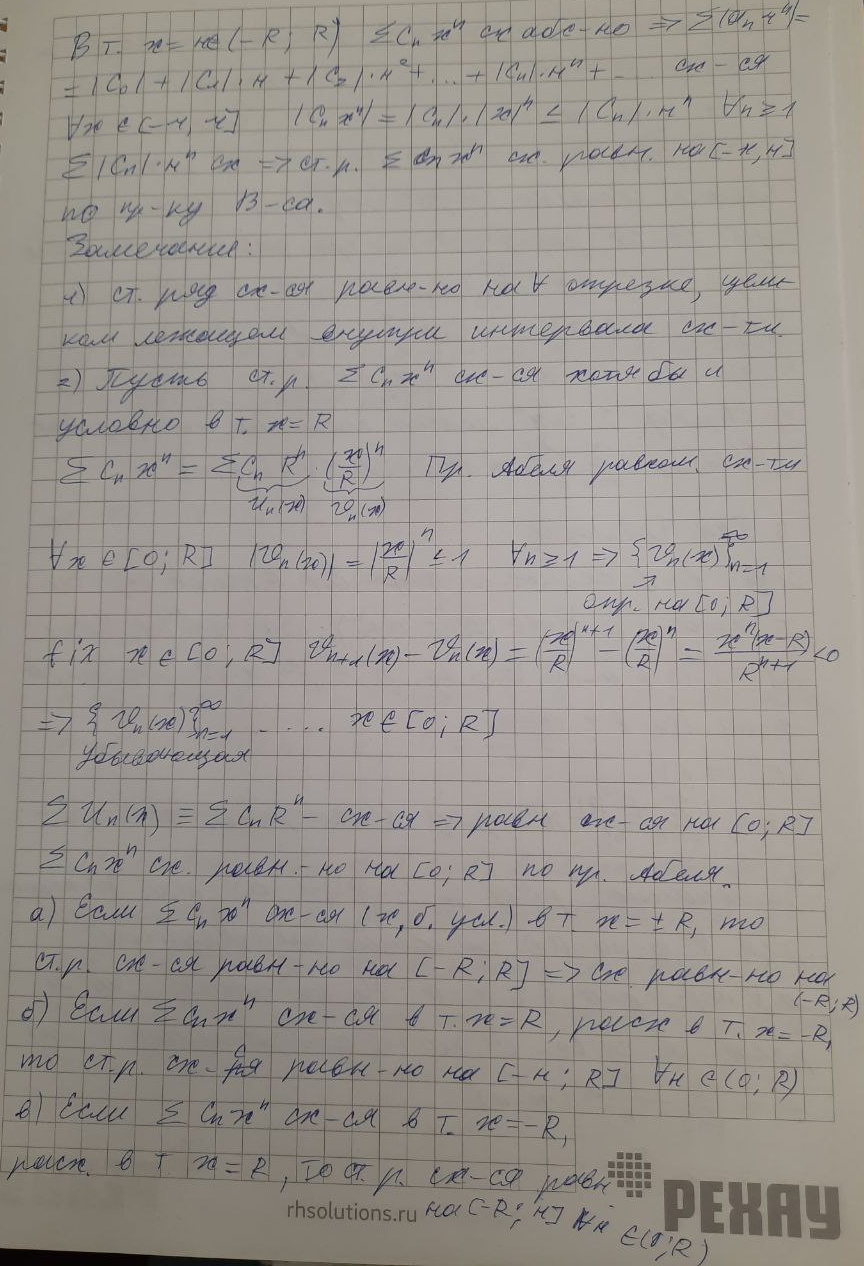 В т. x = н ∈ (-R; R) Σ Cₙ xⁿ сх абс-но ⇒ Σ |Cₙ нⁿ| =
= |C₀| + |C₁|·н + |C₂|·н² + ... + |Cₙ|·нⁿ + ... сх-ся
∀x ∈ [-н, н] |Cₙ xⁿ| = |Cₙ|·|x|ⁿ ≤ |Cₙ|·нⁿ ∀n ≥ 1
Σ |Cₙ|·нⁿ сх ⇒ ст.р. Σ Cₙ xⁿ сх. равн. на [-н, н]
по пр-ку В-са.
Замечание:
1) ст. ряд сх-ся равн-но на ∀ отрезке, цели-
ком лежащем внутри интервала сх-ти.
2) Пусть ст.р. Σ Cₙ xⁿ сх-ся хотя бы и
условно в т. x = R
Σ Cₙ xⁿ = Σ Cₙ Rⁿ · (x/R)ⁿ Пр. Абеля равном. сх-ти
Uₙ(x) Vₙ(x)
∀x ∈ [0; R] |Vₙ(x)| = |x/R|ⁿ ≤ 1 ∀n ≥ 1 ⇒ {Vₙ(x)}ₙ₌₁^∞
опр. на [0; R]
fix x ∈ [0; R] Vₙ₊₁(x) - Vₙ(x) = (x/R)ⁿ⁺¹ - (x/R)ⁿ = xⁿ(x-R)/Rⁿ⁺¹ < 0
⇒ {Vₙ(x)}ₙ₌₁^∞ ..... x ∈ [0; R]
убывающая
Σ Uₙ(x) ≡ Σ Cₙ Rⁿ - сх-ся ⇒ равн сх-ся на [0; R]
Σ Cₙ xⁿ сх. равн.-но на [0; R] по пр. Абеля.
а) Если Σ Cₙ xⁿ сх-ся (х.б. усл.) в т. x = ± R, то
ст.р. сх-ся равн-но на [-R; R] ⇒ сх равн-но на
(-R; R)
б) Если Σ Cₙ xⁿ сх-ся в т. x = R, расх в т. x = -R,
то ст.р. сх-ся равн-но на [-н; R] ∀н ∈ (0; R)
в) Если Σ Cₙ xⁿ сх-ся в т. x = -R,
расх. в т x = R, то ст.р. сх-ся равн
на [-R; н] ∀н ∈ (0; R)
rhsolutions.ru
РЕХАУ